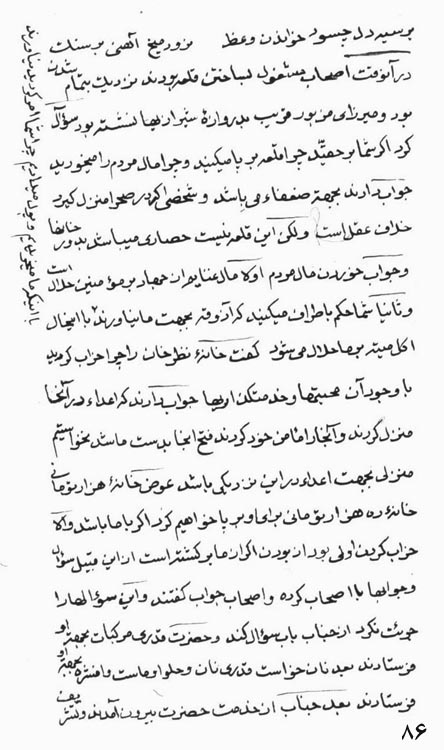 بر سیه دل چسود خواندن وعظ نرود میخ آهنی بر سنک
در آنوقت اصحاب مشغول بساختن قلعه بودند نزدیک بتمام شدن
بود و میرزای مزبور قریب بدروازهٔ شیر اربها نشسته بود سؤال
کرد اکر شما بر حقید چرا قلعه بر پا میکنید و چرا مال مردم را میخورید
جواب دادند بجهة ضعفاء می باشد و شخصی اکر در صحرا منزل کیرد
خلاف عقل است ولکن این قلعه نیست حصاری میباشد بدور خانها
و جواب خوردن مال مردم اولا مال عنایم از جهاد بر مؤمنین حلال است
و ثانیا شما حکم باطراف میکنید که آزوقه بجهت ما نیاورند با اینحال
اکل میته بر ما حلال می شود کفت خانهٔ نظر خان را چرا خراب کردید
با وجود آن محبتها و خدمتکذاریها جواب دادند که اعداء در آنجا
منزل کردند و آنجا را مامن خود کردند فتح آنجا بدست ما شد نخواستیم
منزلی بجهت اعداء در این نزدیکی باشد عوض خانهٔ هزار تومانی
خانهٔ ده هزار تومانی برای او بر پا خواهیم کرد اکر با ما باشد والا
خراب کردن اولی بود از بودن اکر از ما بر کشته است از این قبیل سؤال
و جوابها با اصحاب کرده و اصحاب جواب کفتند و این سؤالها را
جرئت نکرد از جناب باب سؤال کند و حضرت قدری مرکبات بجهة او
فرستادند بعد نان خواست قدری نان و حلوا و ماست و افشره بجهة او
فرستادند بعد جناب از خدمت حضرت بیرون آمدند و تشریف
با اینکه ما میخواهیم و پول میدهیم چرا شما امر کردید نیاورند
۸۶